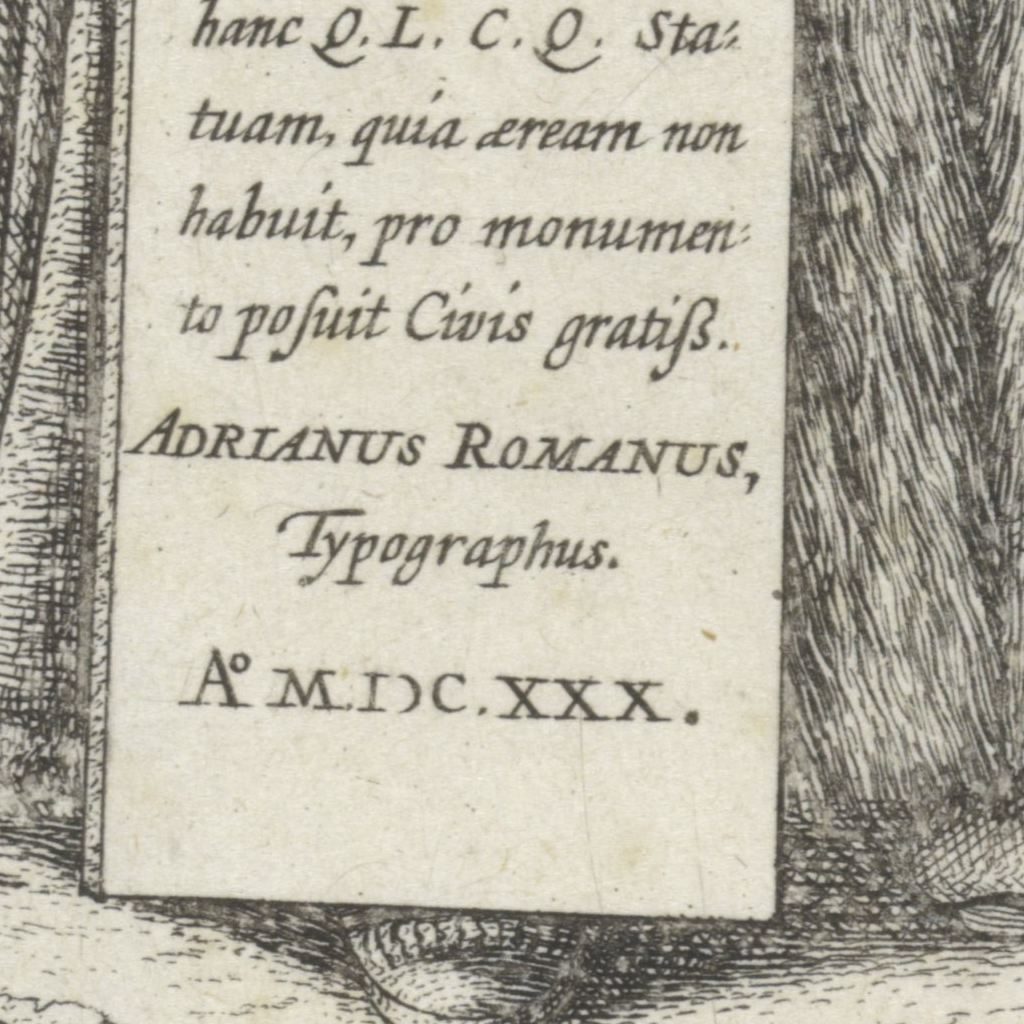 hanc Q. L. C. Q. Sta-
tuam, quia æream non
habuit, pro monumen-
to poſuit Civis gratiſs.
ADRIANUS ROMANUS,
Typographus.
Aº M.DC.XXX.